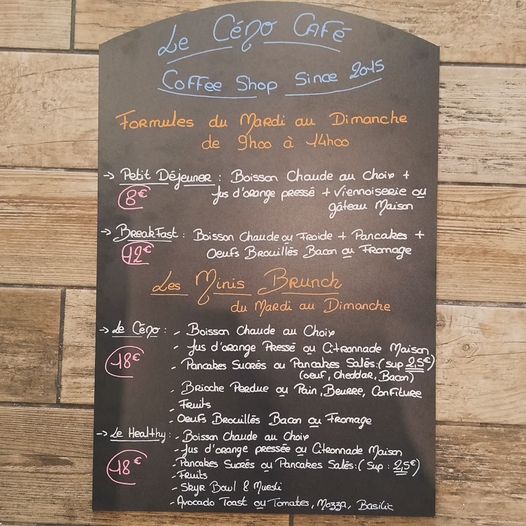 Le Céno Café
Coffee Shop Since 2015
Formules du Mardi au Dimanche
de 9h00 à 14h00
→ Petit Déjeuner : Boisson Chaude au Choix +
8€ Jus d'orange pressé + Viennoiserie ou
gâteau Maison
→ Breakfast : Boisson Chaude ou Froide + Pancakes +
12€ Oeufs Brouillés Bacon ou Fromage
Les Minis Brunch
du Mardi au Dimanche
→ Le Céno : - Boisson Chaude au Choix
- Jus d'orange Pressé ou Citronnade Maison
18€ - Pancakes Sucrés ou Pancakes Salés : (sup 2,5€)
(oeuf, Cheddar, Bacon)
- Brioche Perdue ou Pain, Beurre, Confiture
- Fruits
- Oeufs Brouillés Bacon ou Fromage
→ Le Healthy : - Boisson Chaude au Choix
- Jus d'orange pressée ou Citronnade Maison
18€ - Pancakes Sucrés ou Pancakes Salés : (Sup : 2,5€)
- Fruits
- Skyr Bowl & Muesli
- Avocado Toast ou Tomates, Mozza, Basilic